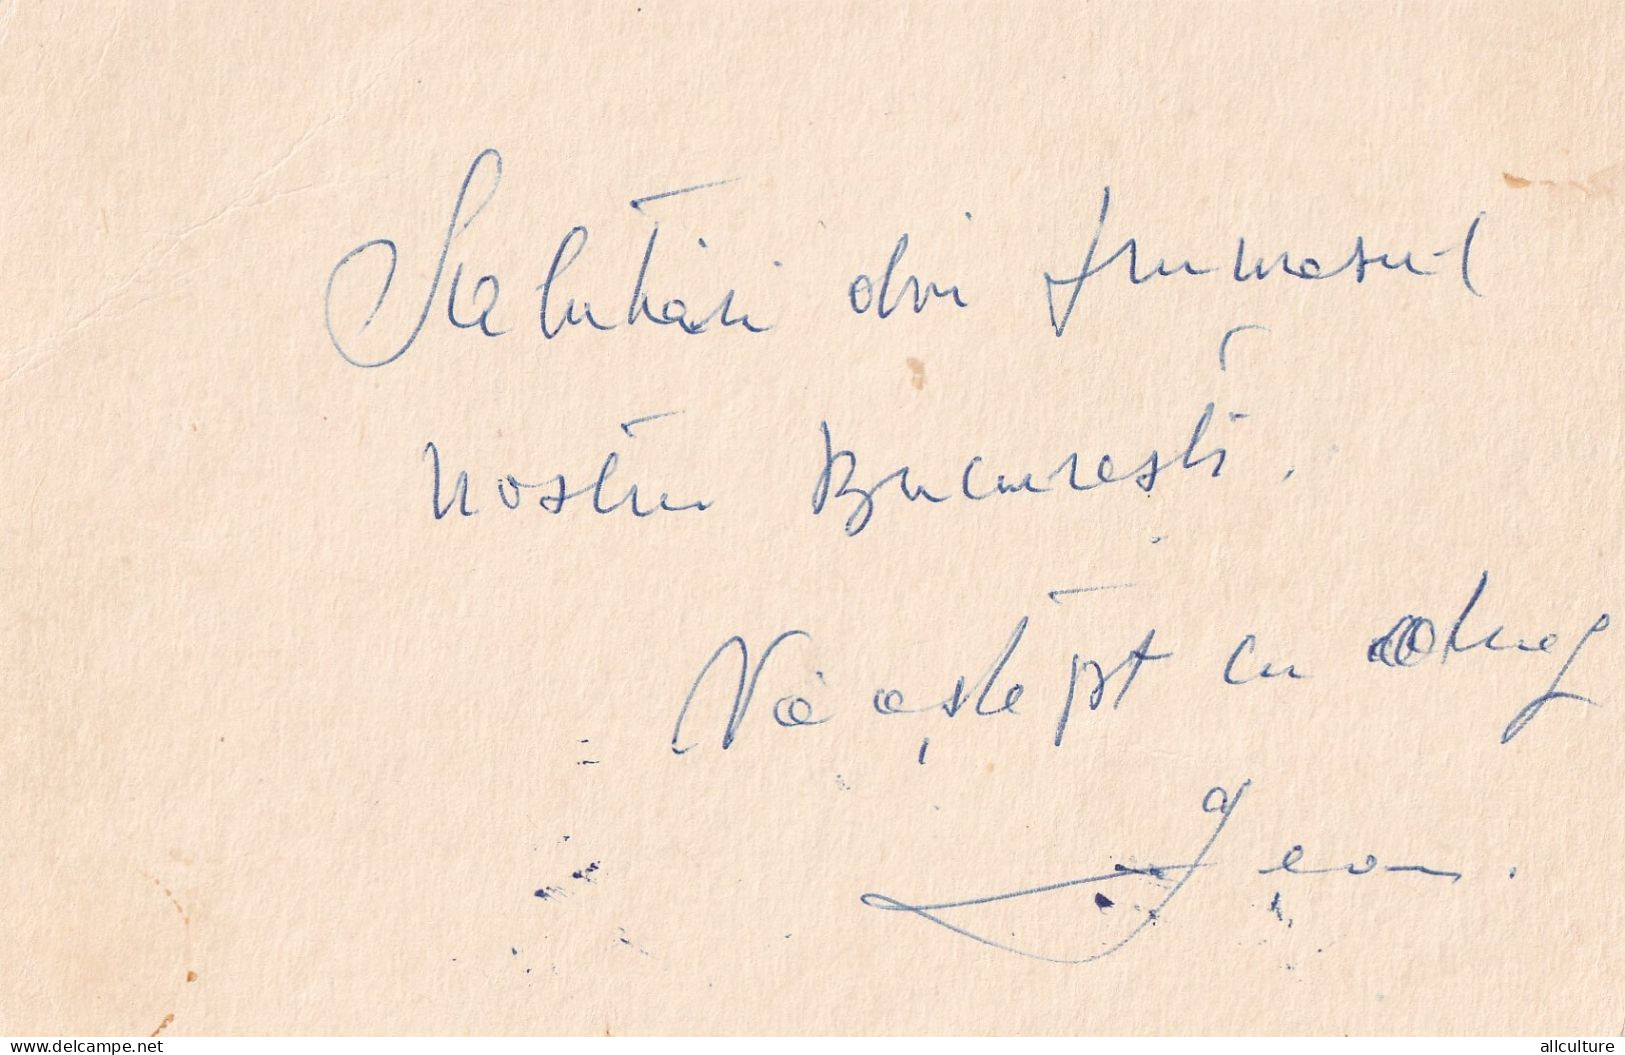 Salutări din frumosul
nostru București.
Vă aștept cu drag
Jean.
delcampe.net
allculture